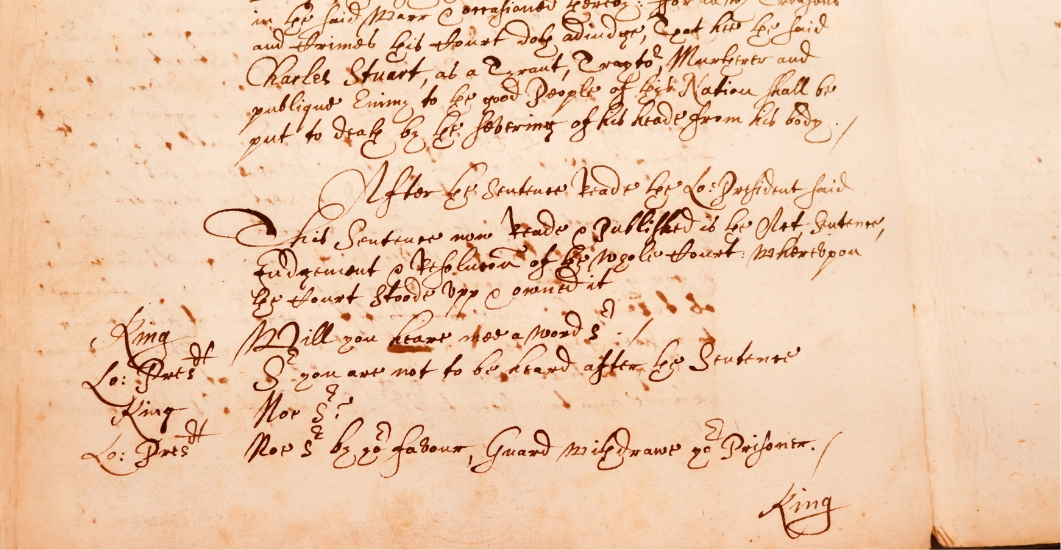 in the said Warr & occasioned thereby: For all wch Treasons
and Crimes this Court doth adiudge, That hee the said
Charles Stuart, as a Tyrant, Traytor, Murtherer and
publique Enimy to the good People of this Nation shall be
put to death by the severing of his heade from his body. /
After the Sentence Reade the Lo: President said
This Sentence now Reade & Published is the Act Sentence,
Judgement & Resolucon of the whole Court: Whereupon
the Court stoode Upp & owned it
King Will you heare mee a word Sr. /
Lo: Presdt Sr you are not to be heard after the Sentence
King Noe Sr?
Lo: Presdt Noe Sr by yor favour, Guard withdrawe yor Prisoner. /
King